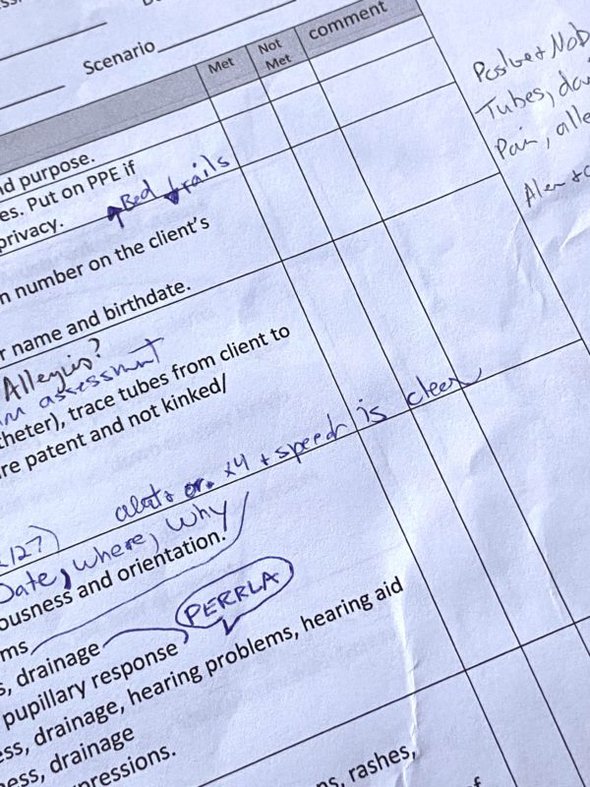 Scenario
Met
Not
Met
comment
nd purpose.
es. Put on PPE if
privacy. Bed rails
n number on the client's
r name and birthdate.
Allergies?
assessment
theter), trace tubes from client to
re patent and not kinked/
x4 + speech is clear
Date, Where, Why
ousness and orientation.
ms
s, drainage
PERRLA
pupillary response
ess, drainage, hearing problems, hearing aid
ness, drainage
pressions.
ns, rashes,
Tubes,
Pain,